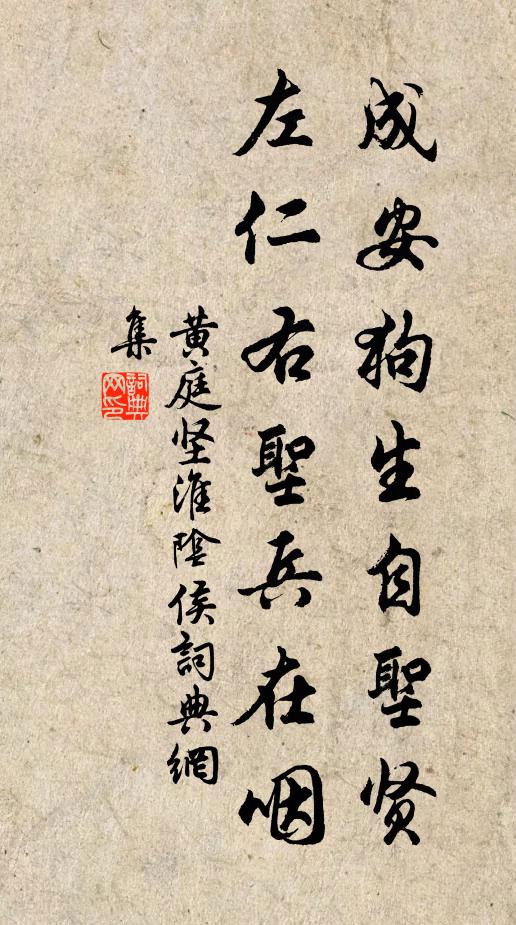 成安狗生自聖贤
左仁右聖兵在咽
黄庭坚淮陰侯詞典網
集
詞典
网印